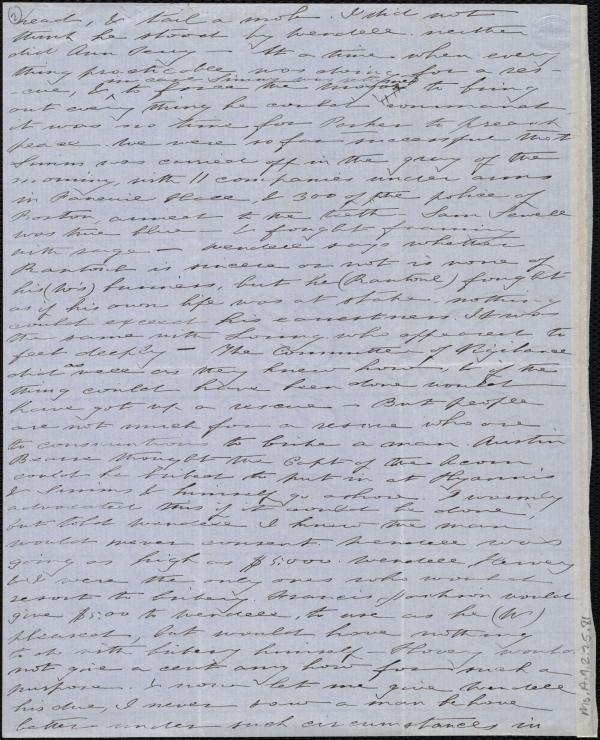 2
head, & tail a mob. I did not
think he stood by wendell. neither
did Ann Terry — At a time when every
thing practicable was doing for a res-
cue, & to force the to bring
out every thing he could command
it was no time for Parker to preach
peace. We were so far successful that
Simms was carried off in the gray of the
morning, with 11 companies under arms
in Faneuil Place, & 300 of the police of
Boston, armed to the teeth. Sam Sewell
was true blue — & fought foaming
with rage — wendell says whether
Rantoul is sincere or not is none of
his (W's) business, but he (Rantoul) fought
as if his own life was at stake. nothing
could exceed his earnestness. It was
the same with Loring who appeared to
feel deeply — The Committee of Vigilance
did as well as they knew how, & if the
thing could have been done would
have got up a rescue — But people
are not much for a rescue who are
to conscientious to bribe a man. Austin
Bearse thought the Capt of the Acorn
could be bribed to put in at Hyannis
& Simms & himself go ashore. I warmly
advocated this if it could be done,
but told wendell I knew the man
would never consent. wendell was
going as high as $5.000. wendell, Hervey
& I were the only ones who would
resort to bribery. Francis Jackson would
give $500 to wendell, to use as he (W)
pleased, but would have nothing
to do with bribery himself — Hovey would
not give a cent any how for such a
purpose. & now let me give wendell
his due, I never saw a man behave
better under such circumstances in
Ms. A.9.2.25.81